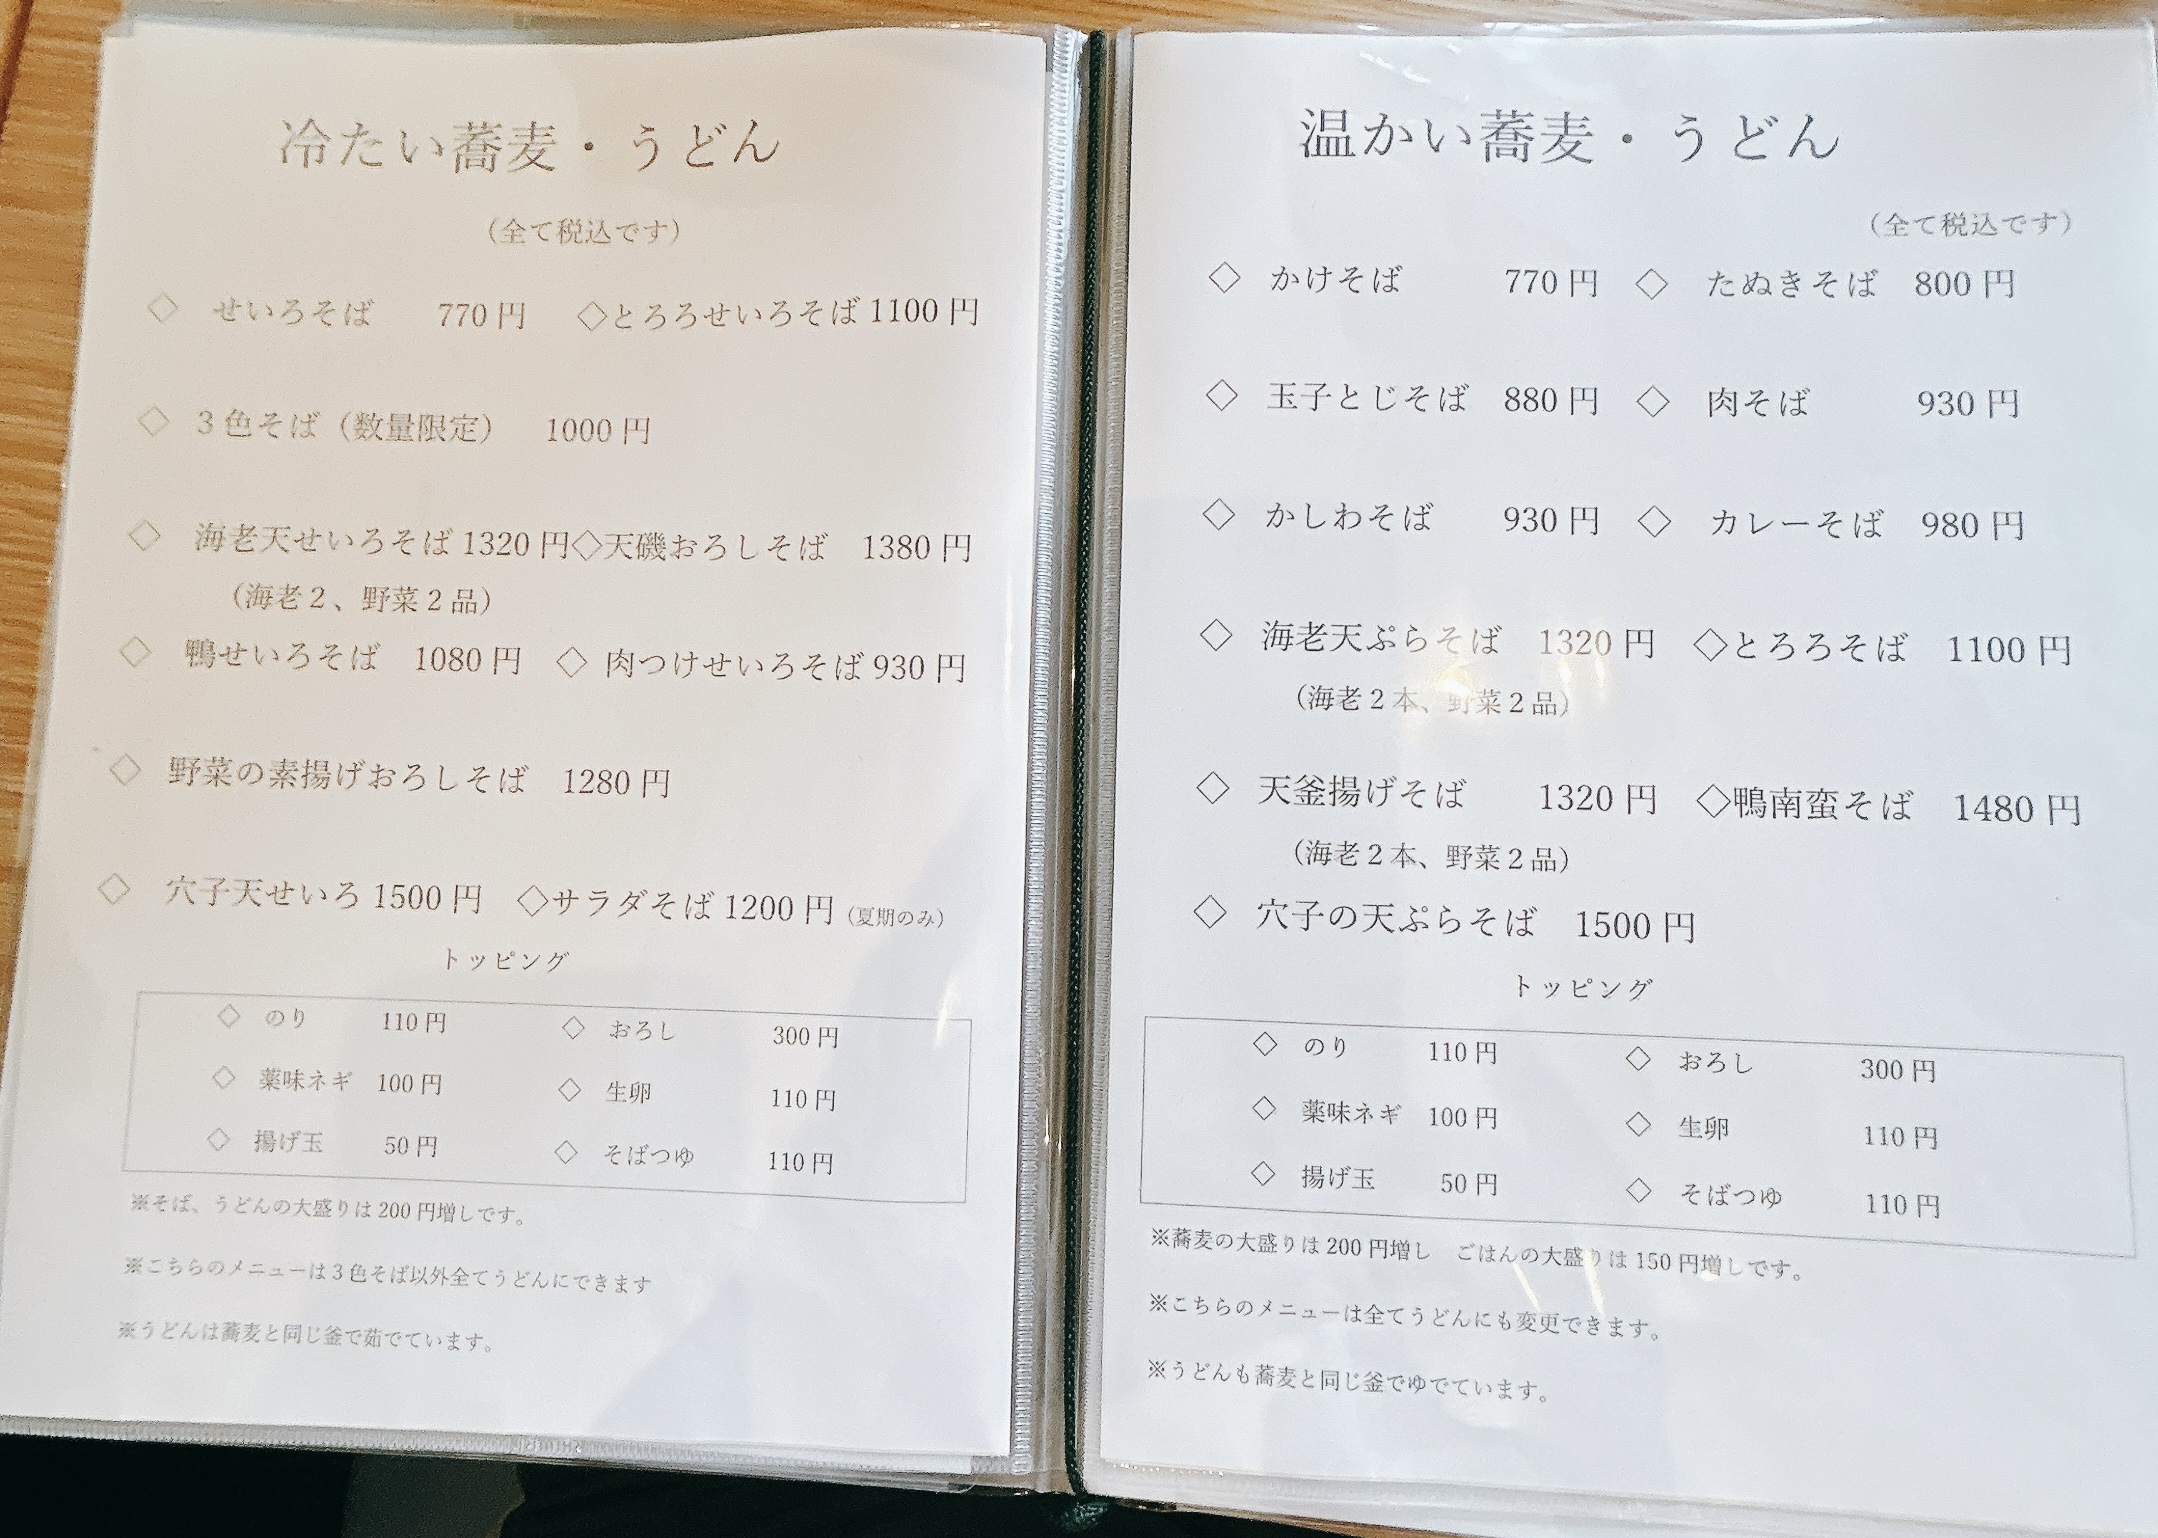 冷たい蕎麦・うどん
（全て税込です）
◇ せいろそば 770円 ◇とろろせいろそば1100円
◇ 3色そば（数量限定） 1000円
◇ 海老天せいろそば1320円◇天磯おろしそば 1380円
（海老2、野菜2品）
◇ 鴨せいろそば 1080円 ◇ 肉つけせいろそば930円
◇ 野菜の素揚げおろしそば 1280円
◇ 穴子天せいろ1500円 ◇サラダそば1200円（夏期のみ）
トッピング
◇ のり 110円 ◇ おろし 300円
◇ 薬味ネギ 100円 ◇ 生卵 110円
◇ 揚げ玉 50円 ◇ そばつゆ 110円
※そば、うどんの大盛りは200円増しです。
※こちらのメニューは3色そば以外全てうどんにできます
※うどんは蕎麦と同じ釜で茹でています。
温かい蕎麦・うどん
（全て税込です）
◇ かけそば 770円 ◇ たぬきそば 800円
◇ 玉子とじそば 880円 ◇ 肉そば 930円
◇ かしわそば 930円 ◇ カレーそば 980円
◇ 海老天ぷらそば 1320円 ◇とろろそば 1100円
（海老2本、野菜2品）
◇ 天釜揚げそば 1320円 ◇鴨南蛮そば 1480円
（海老2本、野菜2品）
◇ 穴子の天ぷらそば 1500円
トッピング
◇ のり 110円 ◇ おろし 300円
◇ 薬味ネギ 100円 ◇ 生卵 110円
◇ 揚げ玉 50円 ◇ そばつゆ 110円
※蕎麦の大盛りは200円増し ごはんの大盛りは150円増しです。
※こちらのメニューは全てうどんにも変更できます。
※うどんも蕎麦と同じ釜でゆでています。